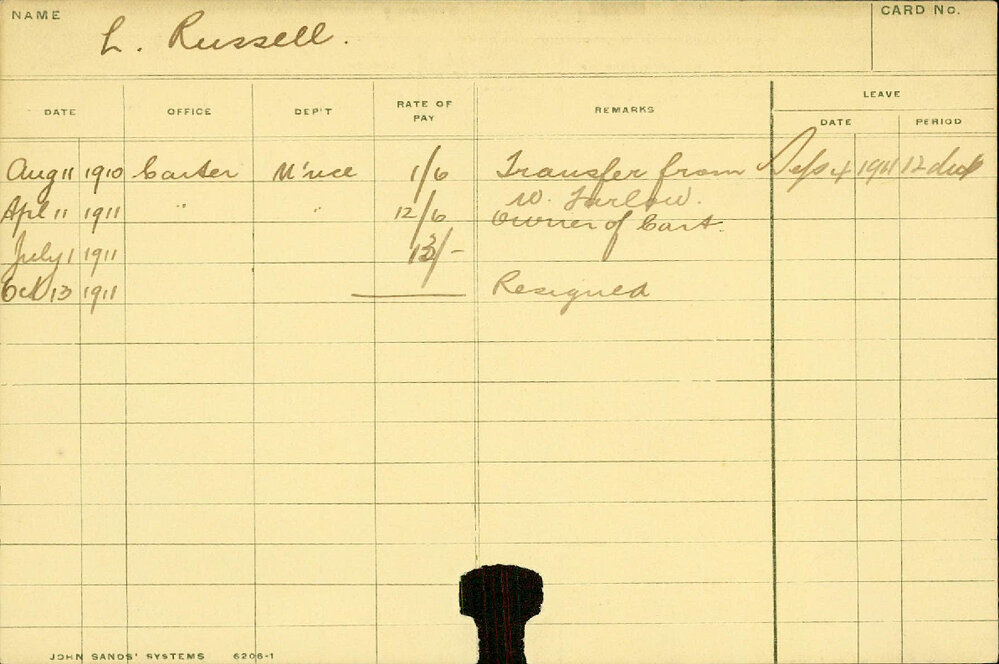 NAME
L. Russell.
CARD No.
DATE OFFICE DEP'T RATE OF PAY REMARKS LEAVE
DATE PERIOD
Aug 11 1910 Carter M'nce 1/6 Transfer from Sep 4 1911 12 dys
W. Farlow.
Apl 11 1911 " " 12/6 Owner of Cart.
July 1 1911 /-
Oct 13 1911 Resigned
JOHN SANDS' SYSTEMS 6206-1